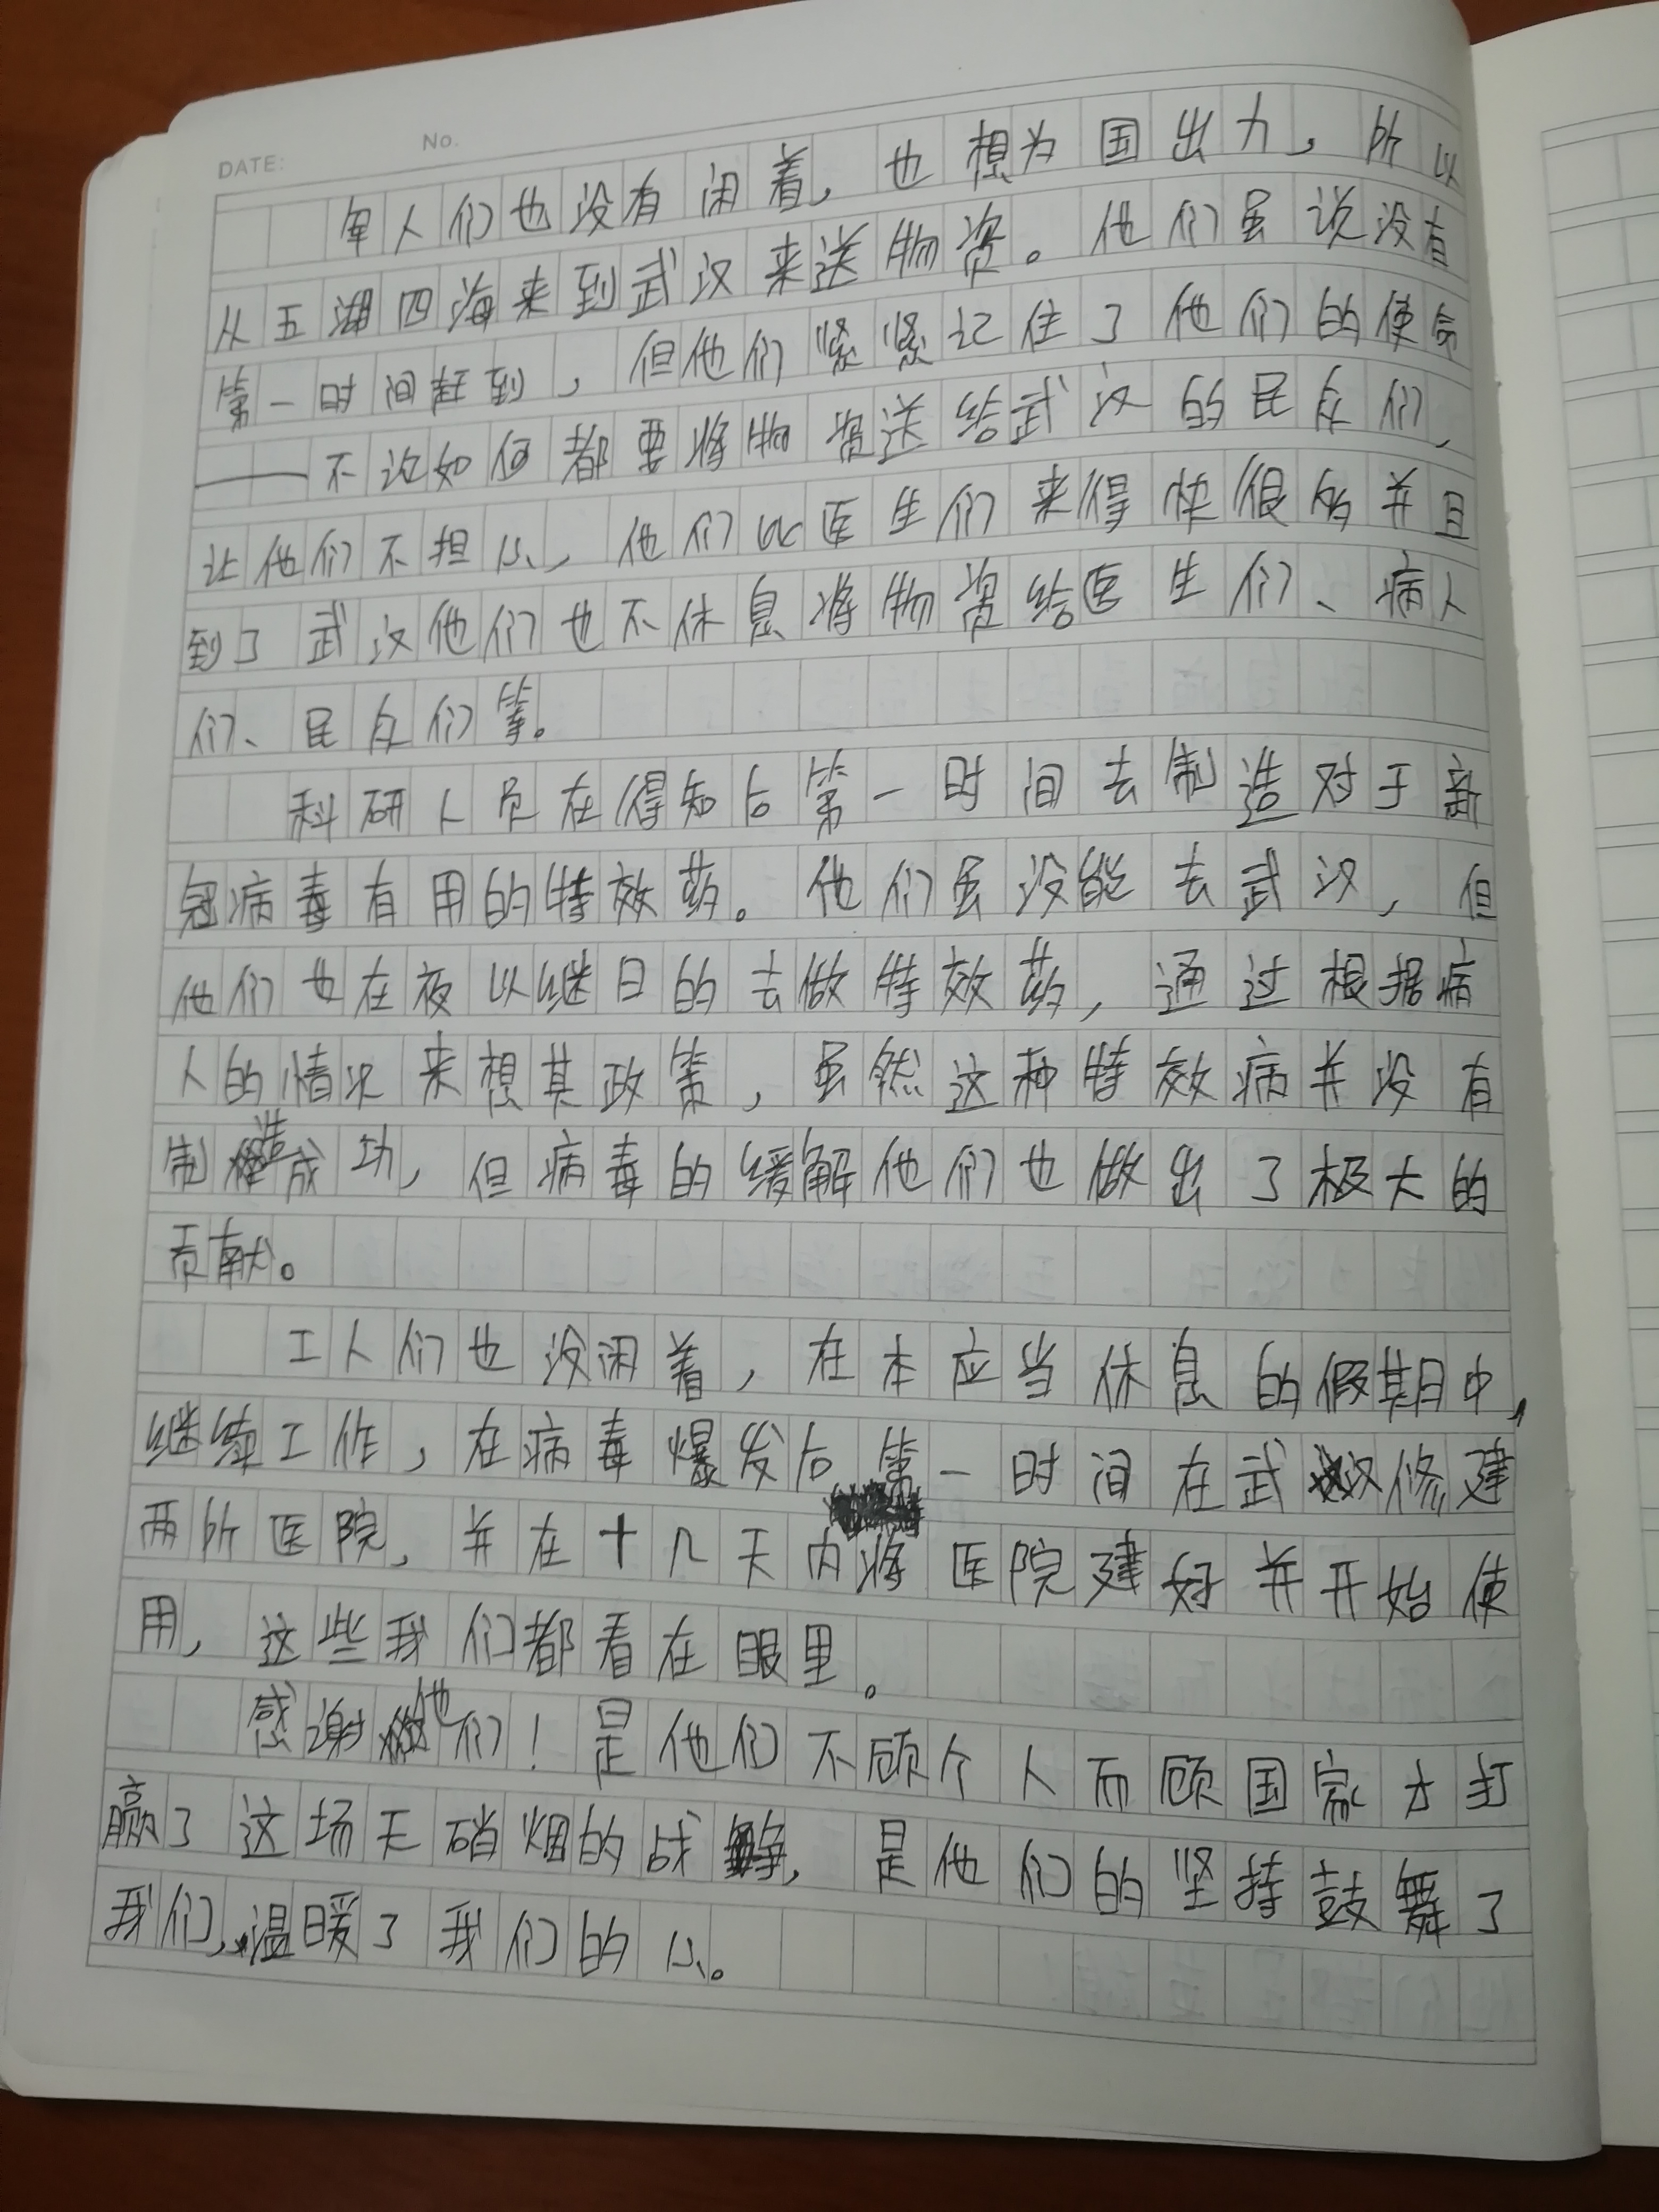 DATE: No.
军人们也没有闲着，也想为国出力，所以
从五湖四海来到武汉来送物资。他们虽说没有
第一时间赶到，但他们紧紧记住了他们的使命
——不论如何都要将物资送给武汉的民众们，
让他们不担心，他们比医生们来得快很多并且
到了武汉他们也不休息将物资给医生们、病人
们、民众们等。
科研人员在得知后第一时间去制造对于新
冠病毒有用的特效药。他们虽没能去武汉，但
他们也在夜以继日的去做特效药，通过根据病
人的情况来想其政策，虽然这种特效病并没有
制造成功，但病毒的缓解他们也做出了极大的
贡献。
工人们也没闲着，在本应当休息的假期中，
继续工作，在病毒爆发后第一时间在武汉修建
两所医院，并在十几天内将医院建好并开始使
用，这些我们都看在眼里。
感谢他们！是他们不顾个人而顾国家才打
赢了这场无硝烟的战争，是他们的坚持鼓舞了
我们，温暖了我们的心。